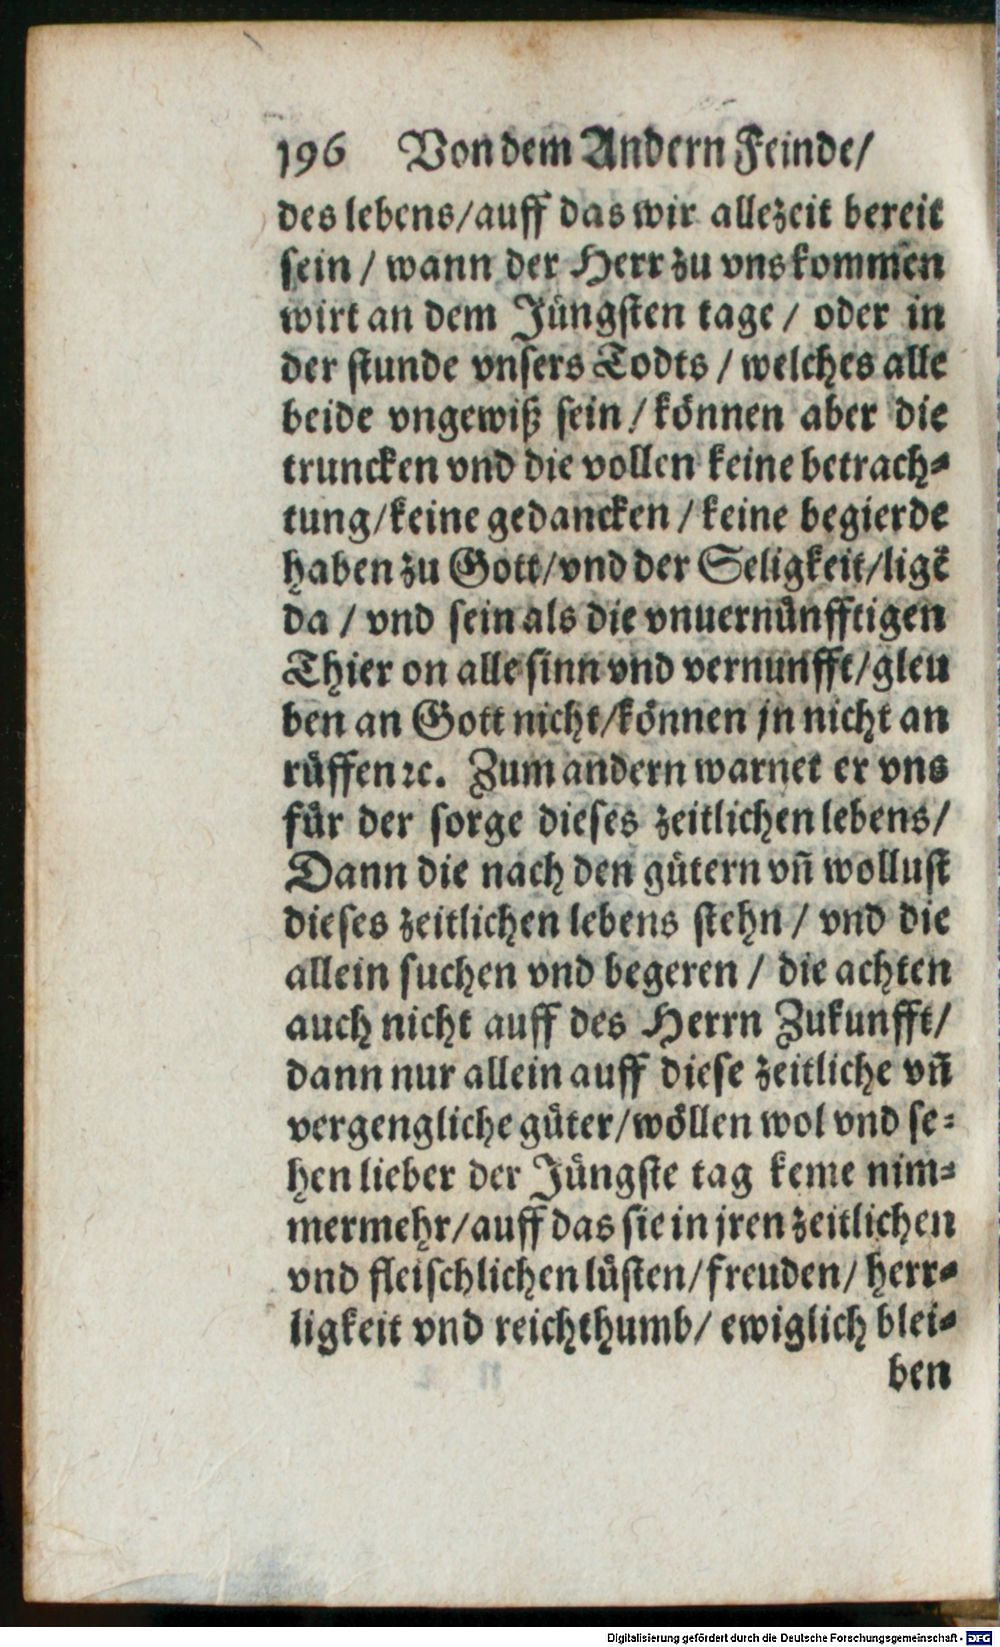 196 Von dem Andern Feinde/
des lebens/auff das wir allezeit bereit
sein / wann der Herr zu vns kommen
wirt an dem Jüngsten tage / oder in
der stunde vnsers Todts / welches alle
beide vngewiß sein / können aber die
truncken vnd die vollen keine betrach⸗
tung/keine gedancken / keine begierde
haben zu Gott/vnd der Seligkeit/ligẽ
da / vnd sein als die vnuernünfftigen
Thier on alle sinn vnd vernunfft/gleu
ben an Gott nicht/können jn nicht an
rüffen ꝛc. Zum andern warnet er vns
für der sorge dieses zeitlichen lebens/
Dann die nach den gütern vñ wollust
dieses zeitlichen lebens stehn / vnd die
allein suchen vnd begeren / die achten
auch nicht auff des Herrn Zukunfft/
dann nur allein auff diese zeitliche vñ
vergengliche güter/wöllen wol vnd se⸗
hen lieber der Jüngste tag keme nim⸗
mermehr/auff das sie in jren zeitlichen
vnd fleischlichen lüsten/freuden/ herr⸗
ligkeit vnd reichthumb/ ewiglich blei⸗
ben
Digitalisierung gefördert durch die Deutsche Forschungsgemeinschaft - DFG